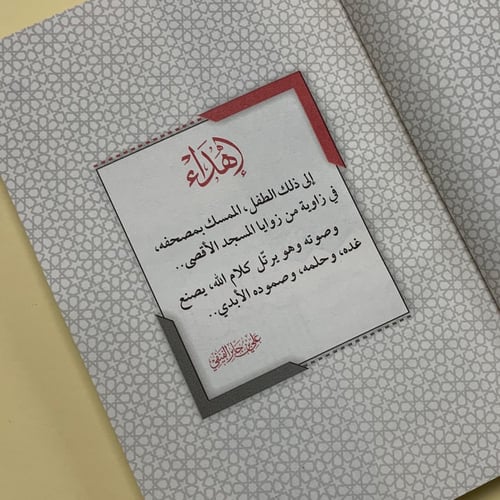 إهداء
إلى ذلك الطفل، الممسك بمصحفه،
في زاوية من زوايا المسجد الأقصى..
وصوته وهو يرتّل كلام الله، يصنع
غده، وحلمه، وصموده الأبدي..
علي بن جابر الفيفي